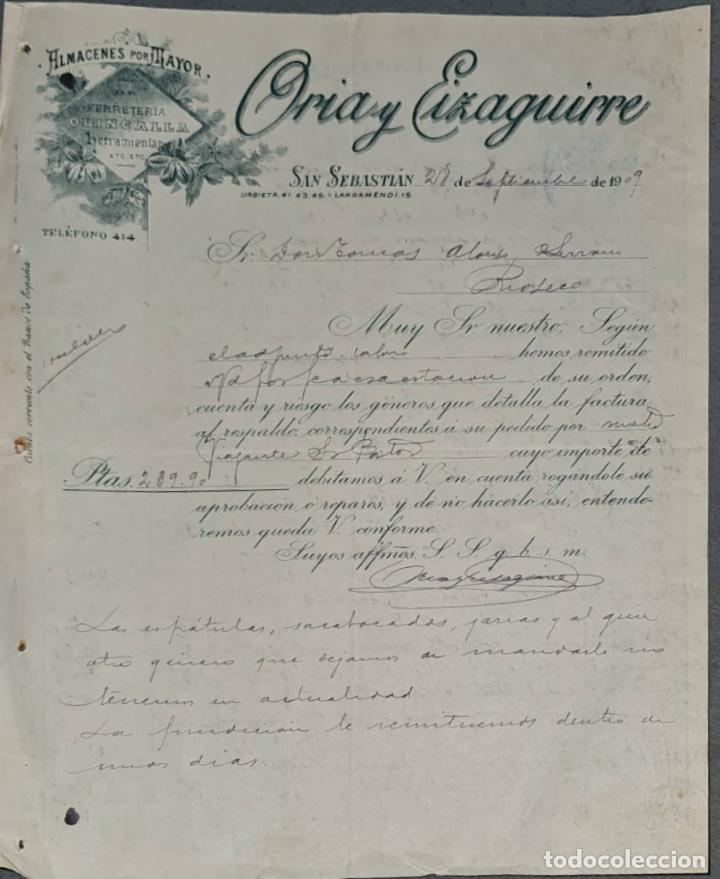 ALMACENES POR MAYOR.
DE
FERRETERIA
QUINCALLA
herramientas
ETC. ETC.
TELÉFONO 414
Oria y Eizaguirre
SAN SEBASTIÁN 28 de Septiembre de 1909
URBIETA, 41. 43. 45. LARRAMENDI. 15
Sr. Don Tomas Alonso Serrano
Rioseco
Cuenta corriente con el Banco de España
Muy Sr. nuestro: Según
el adjunto talon hemos remitido
á Vd por f c a esa estación de su orden,
cuenta y riesgo los géneros que detalla la factura
al respaldo, correspondientes á su pedido por
Viajante Sr Pastor cuyo importe de
Ptas. 289.90 debitamos á V. en cuenta rogándole su
aprobación ó reparos, y de no hacerlo así, entende-
remos queda V. conforme.
Suyos affmos. S. S. q. b. s. m.
Oria y Eizaguirre
Las espátulas, sacabocados, jarras y al gun
otro género que dejamos de mandarle no
tenemos en actualidad.
La fundición le remitiremos dentro de
unos dias.
todocoleccion.net